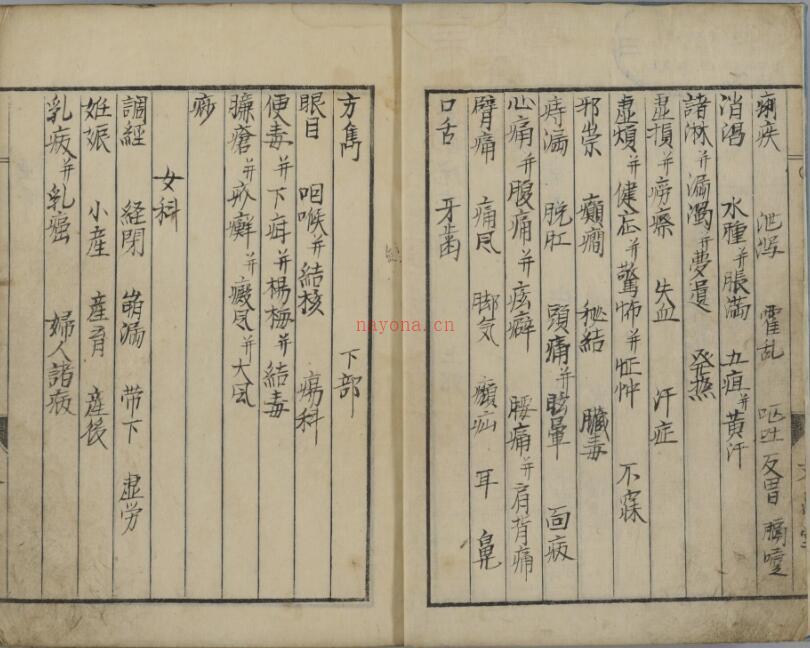 痢疾 泄瀉 霍乱 呕吐 反胃 膈噎
消渇 水腫并脹満 五疸并黄汗
諸淋并漏濁并夢遺 発熱
虚損并癆瘵 失血 汗症
虚煩并健忘并驚怖并怔忡 不寐
邪祟 癲癇 秘結 臓毒
痔漏 脱肛 頭痛并眩暈 面病
心痛并腹痛并痃癖 腰痛并肩背痛
臂痛 痛風 脚気 㿗疝 耳 鼻
口舌 牙歯
方雋 下部
眼目 咽喉并結核 瘍科
便毒并下疳并楊梅并結毒
臁瘡并疥癬并癜風并大風
痧
女科
調経 経閉 崩漏 帯下 虚労
妊娠 小産 産育 産後
乳病并乳癌 婦人諸病
nayona.cn